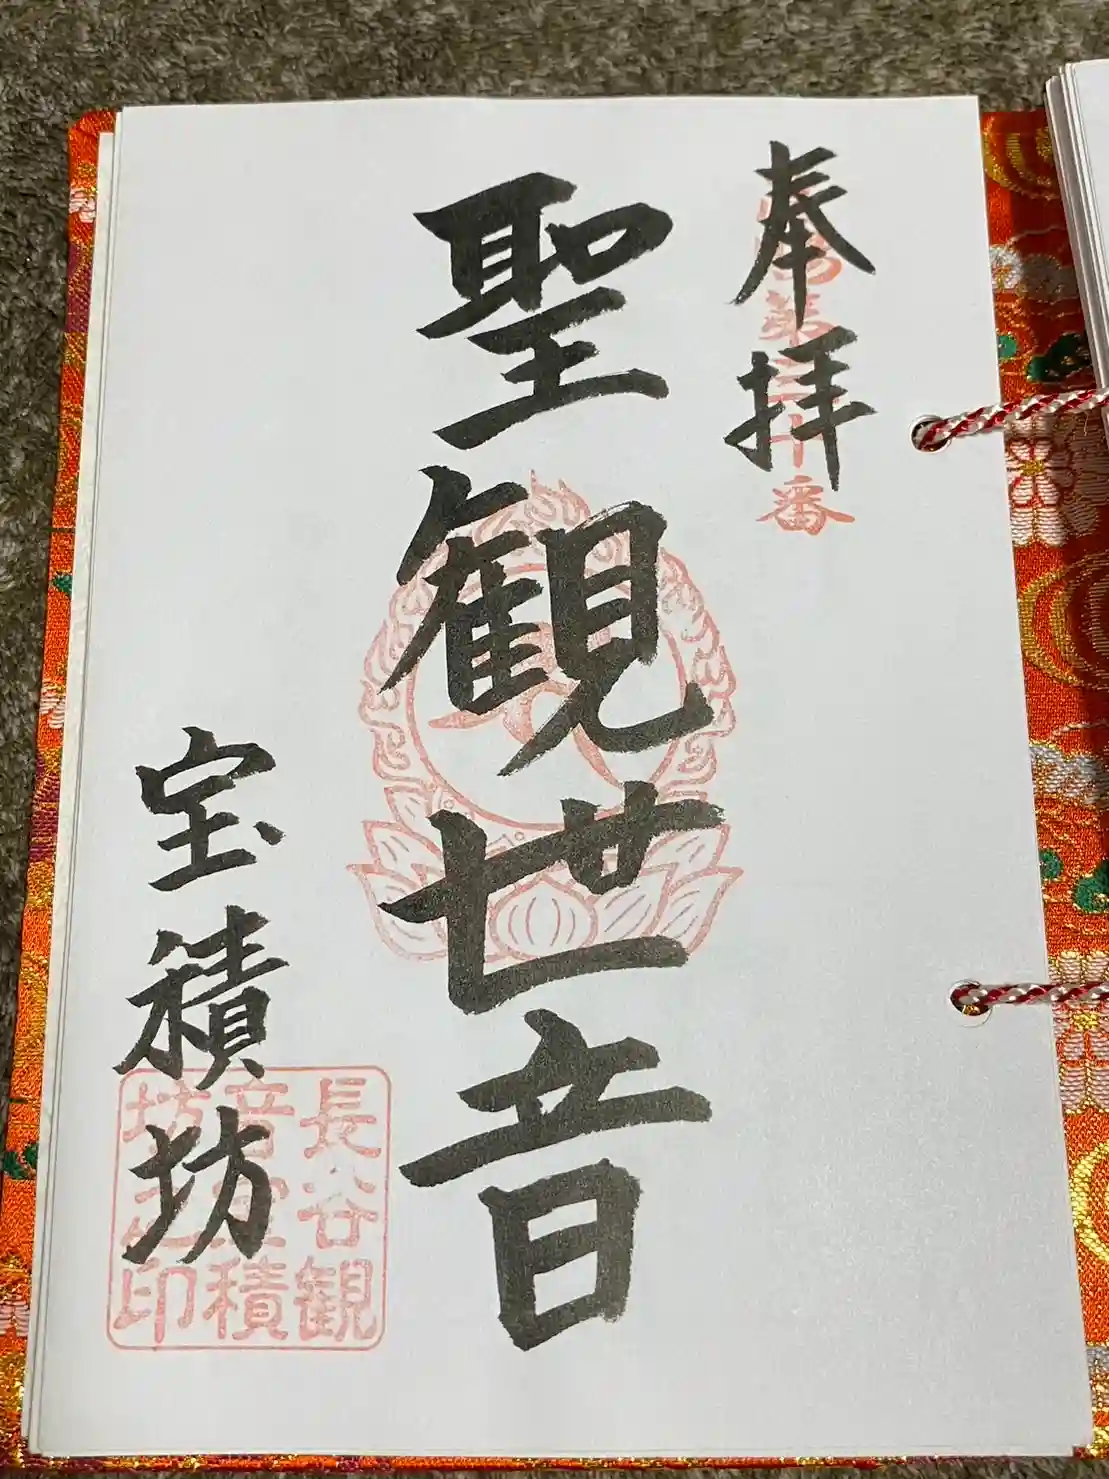 奉拝
第三十番
聖観世音
宝積坊
長谷観
音宝積
坊之印